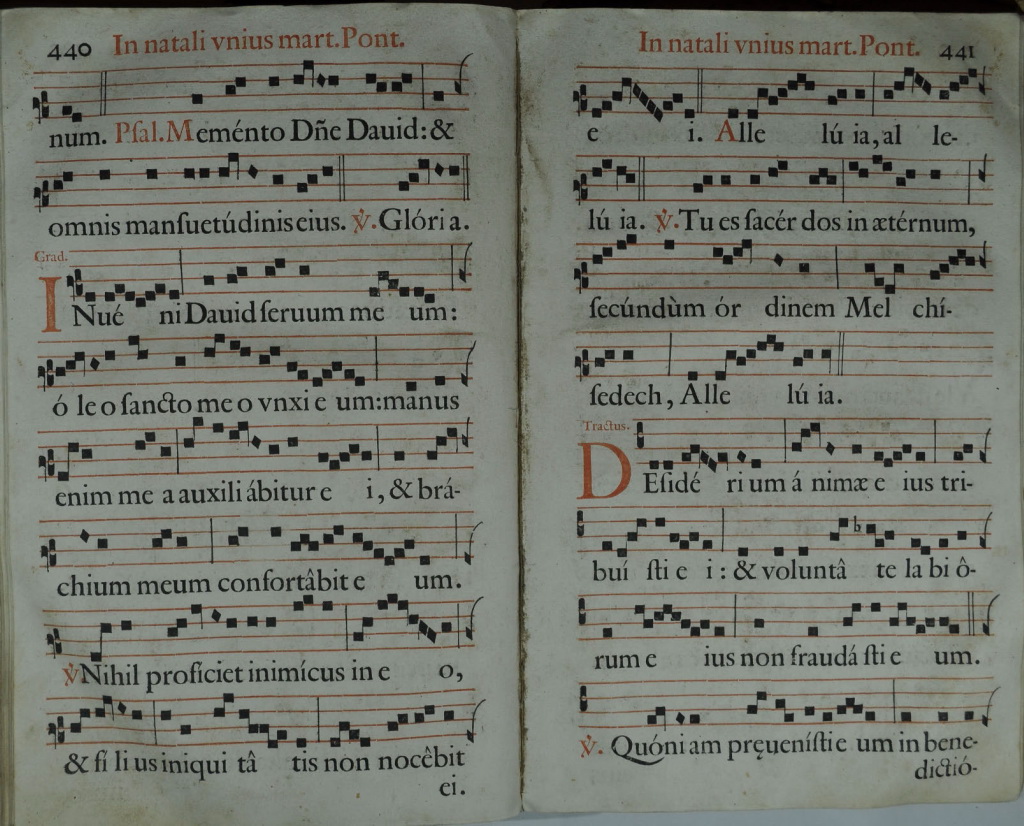 440 In natali vnius mart.Pont.
num. Pſal. Meménto Dñe Dauid: &
omnis manſuetúdinis eius. ℣. Glória.
Grad.
INué ni Dauid ſeruum me um:
ó le o ſancto me o vnxi e um: manus
enim me a auxili ábitur e i, & brá-
chium meum confortâbit e um.
℣ Nihil profíciet inimícus in e o,
& fí li us iniqui tâ tis non nocêbit
ei.
In natali vnius mart.Pont. 441
e i. Alle lú ia, al le-
lú ia. ℣. Tu es ſacér dos in ætérnum,
ſecúndùm ór dinem Mel chí-
ſedech, Alle lú ia.
Tractus.
DEſidé ri um á nimæ e ius tri-
buí ſti e i: & voluntâ te la bi ô-
rum e ius non fraudá ſti e um.
℣. Quóni am pręueníſti e um in bene-
dictió-